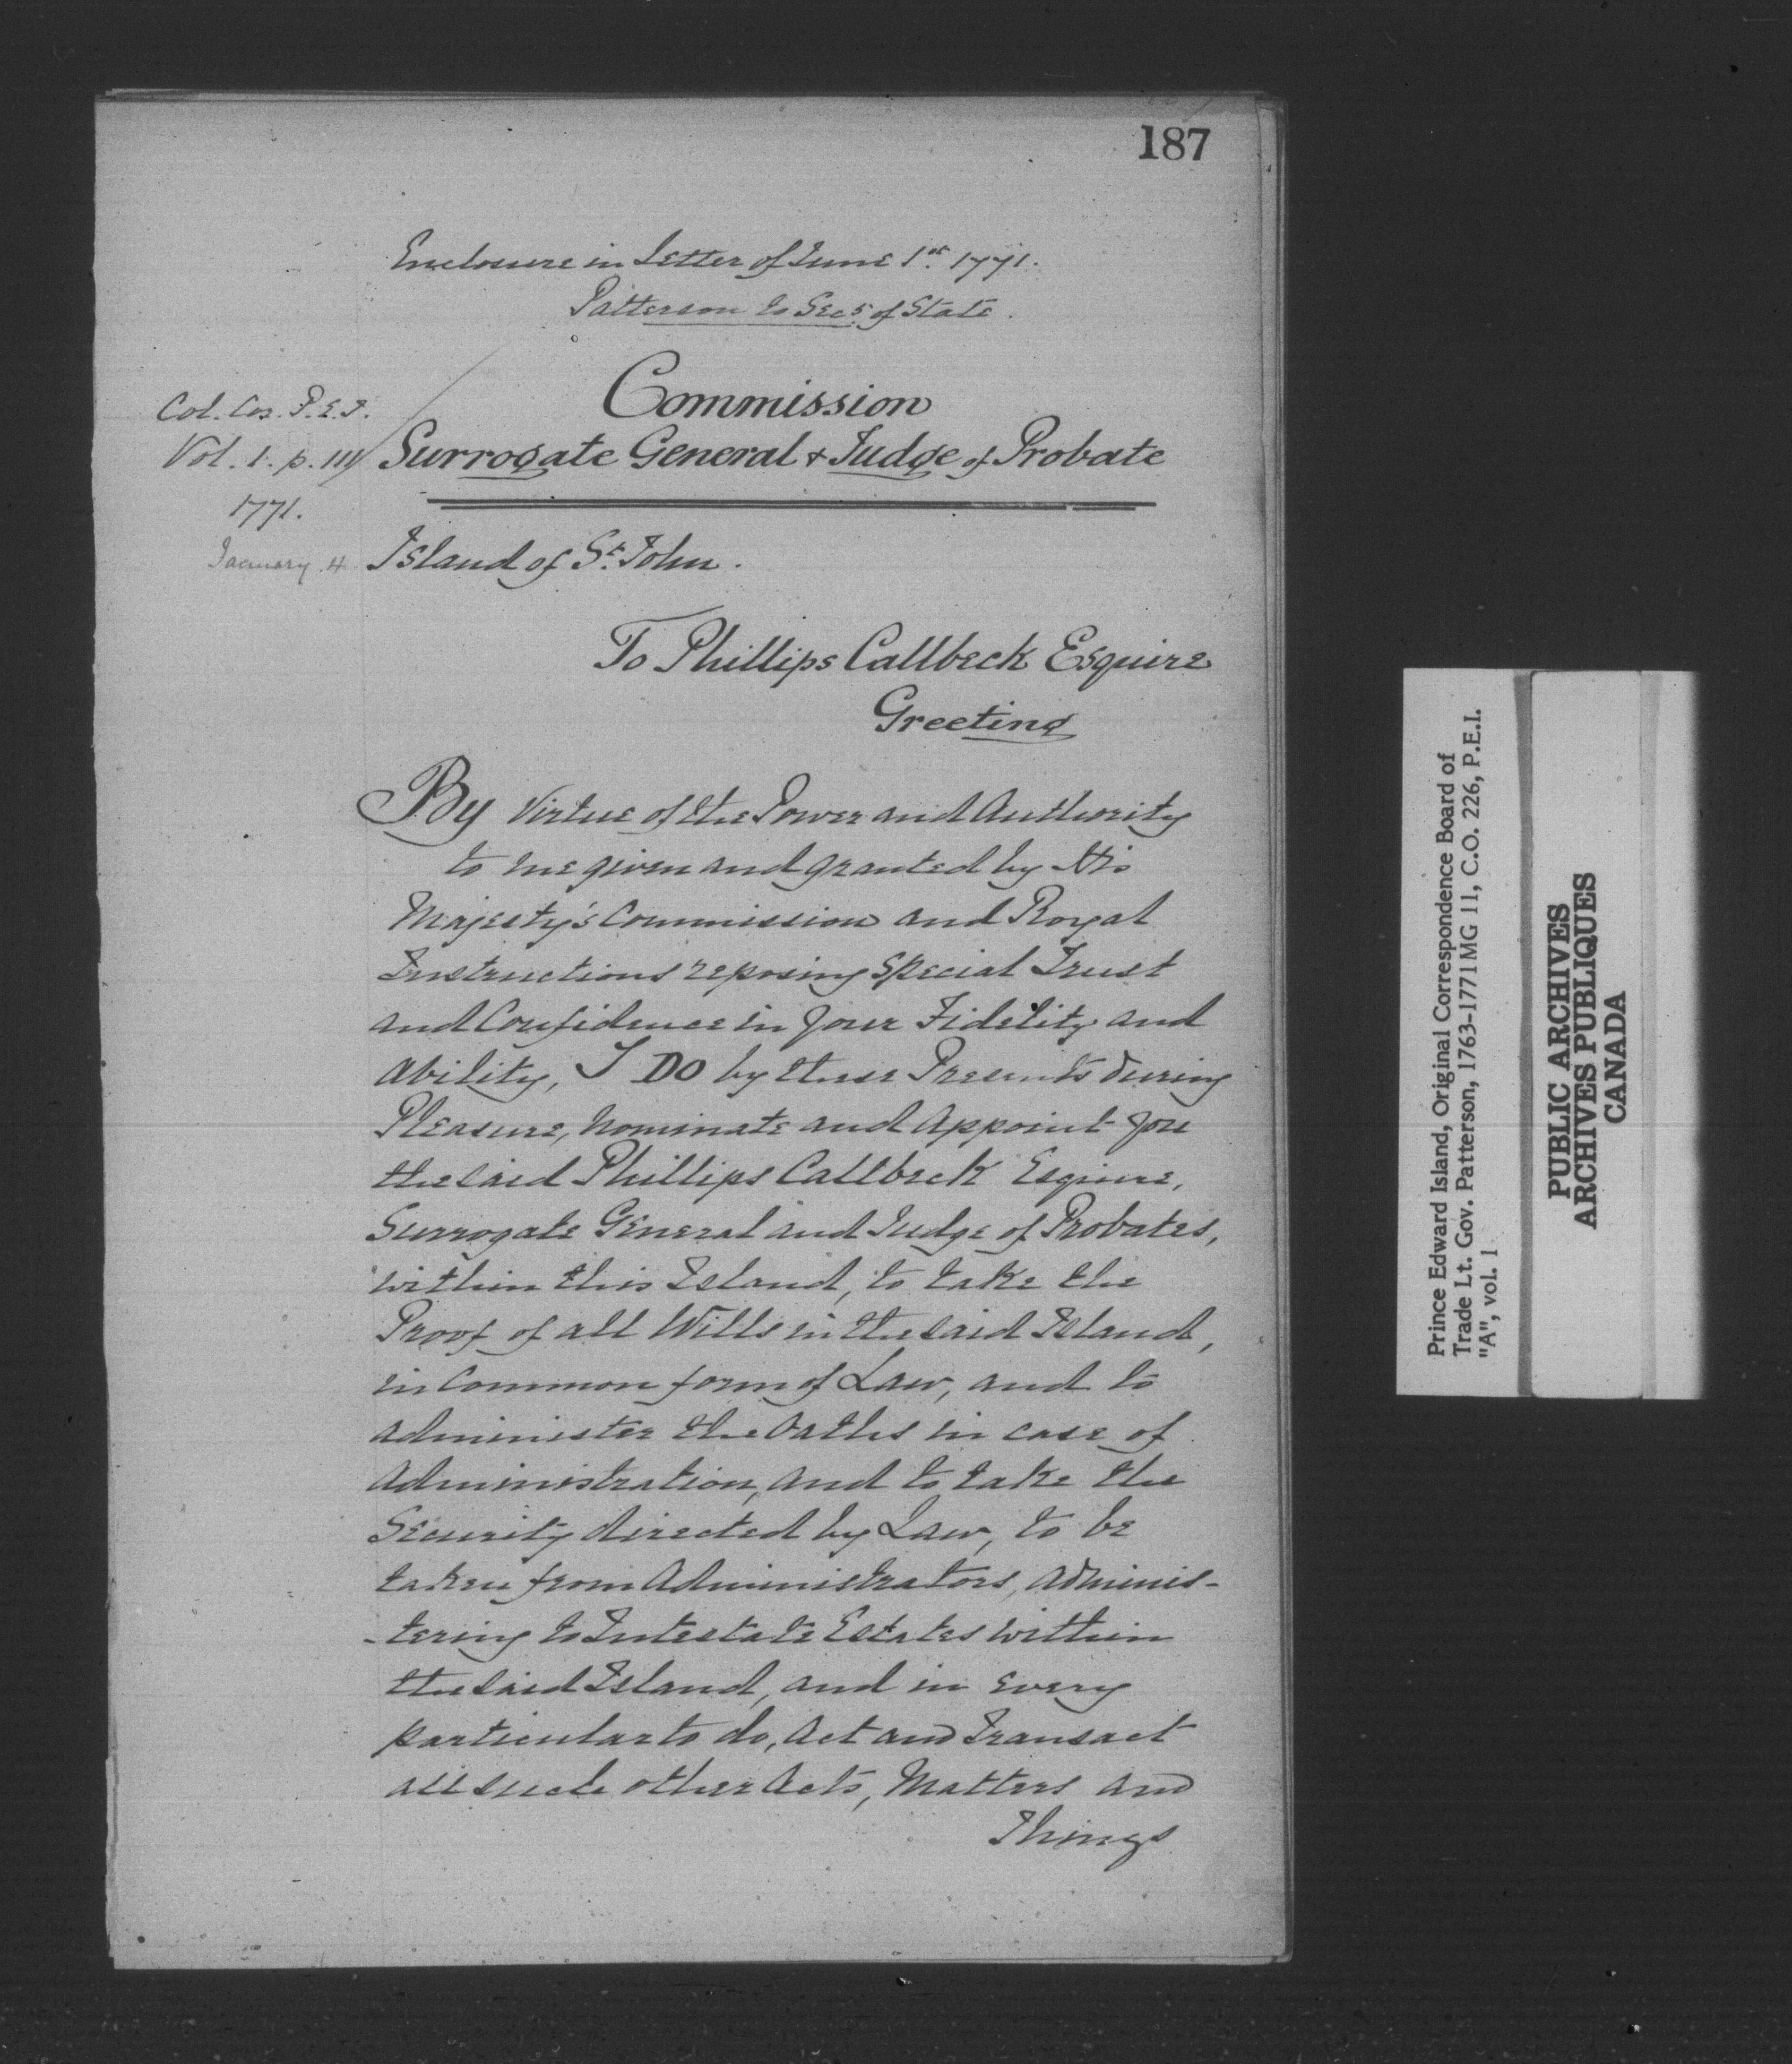 187
Enclosure in Letter of June 1st. 1771.
Patterson to Secy. of State.
Col. Cor. P.E.I.
Vol. 1. p. 111
1771.
January 4
Commission
Surrogate General & Judge of Probate
Island of St. John.
To Phillips Callbeck Esquire
Greeting
By Virtue of the Power and Authority
to me given and granted by His
Majesty's Commission and Royal
Instructions reposing Special Trust
and Confidence in your Fidelity and
Ability, I DO by these Presents during
Pleasure, nominate and Appoint you
the said Phillips Callbeck Esquire,
Surrogate General and Judge of Probates,
within this Island, to take the
Proof of all Wills in the said Island,
in Common form of Law, and to
administer the Oaths in case of
Administration, and to take the
Security directed by Law, to be
taken from Administrators, adminis-
-tering to Intestate Estates within
the said Island, and in every
particular to do, Act and Transact
all such other Acts, Matters and
Things
Prince Edward Island, Original Correspondence Board of
Trade Lt. Gov. Patterson, 1763-1771 MG 11, C.O. 226, P.E.I.
"A", vol. 1
PUBLIC ARCHIVES
ARCHIVES PUBLIQUES
CANADA